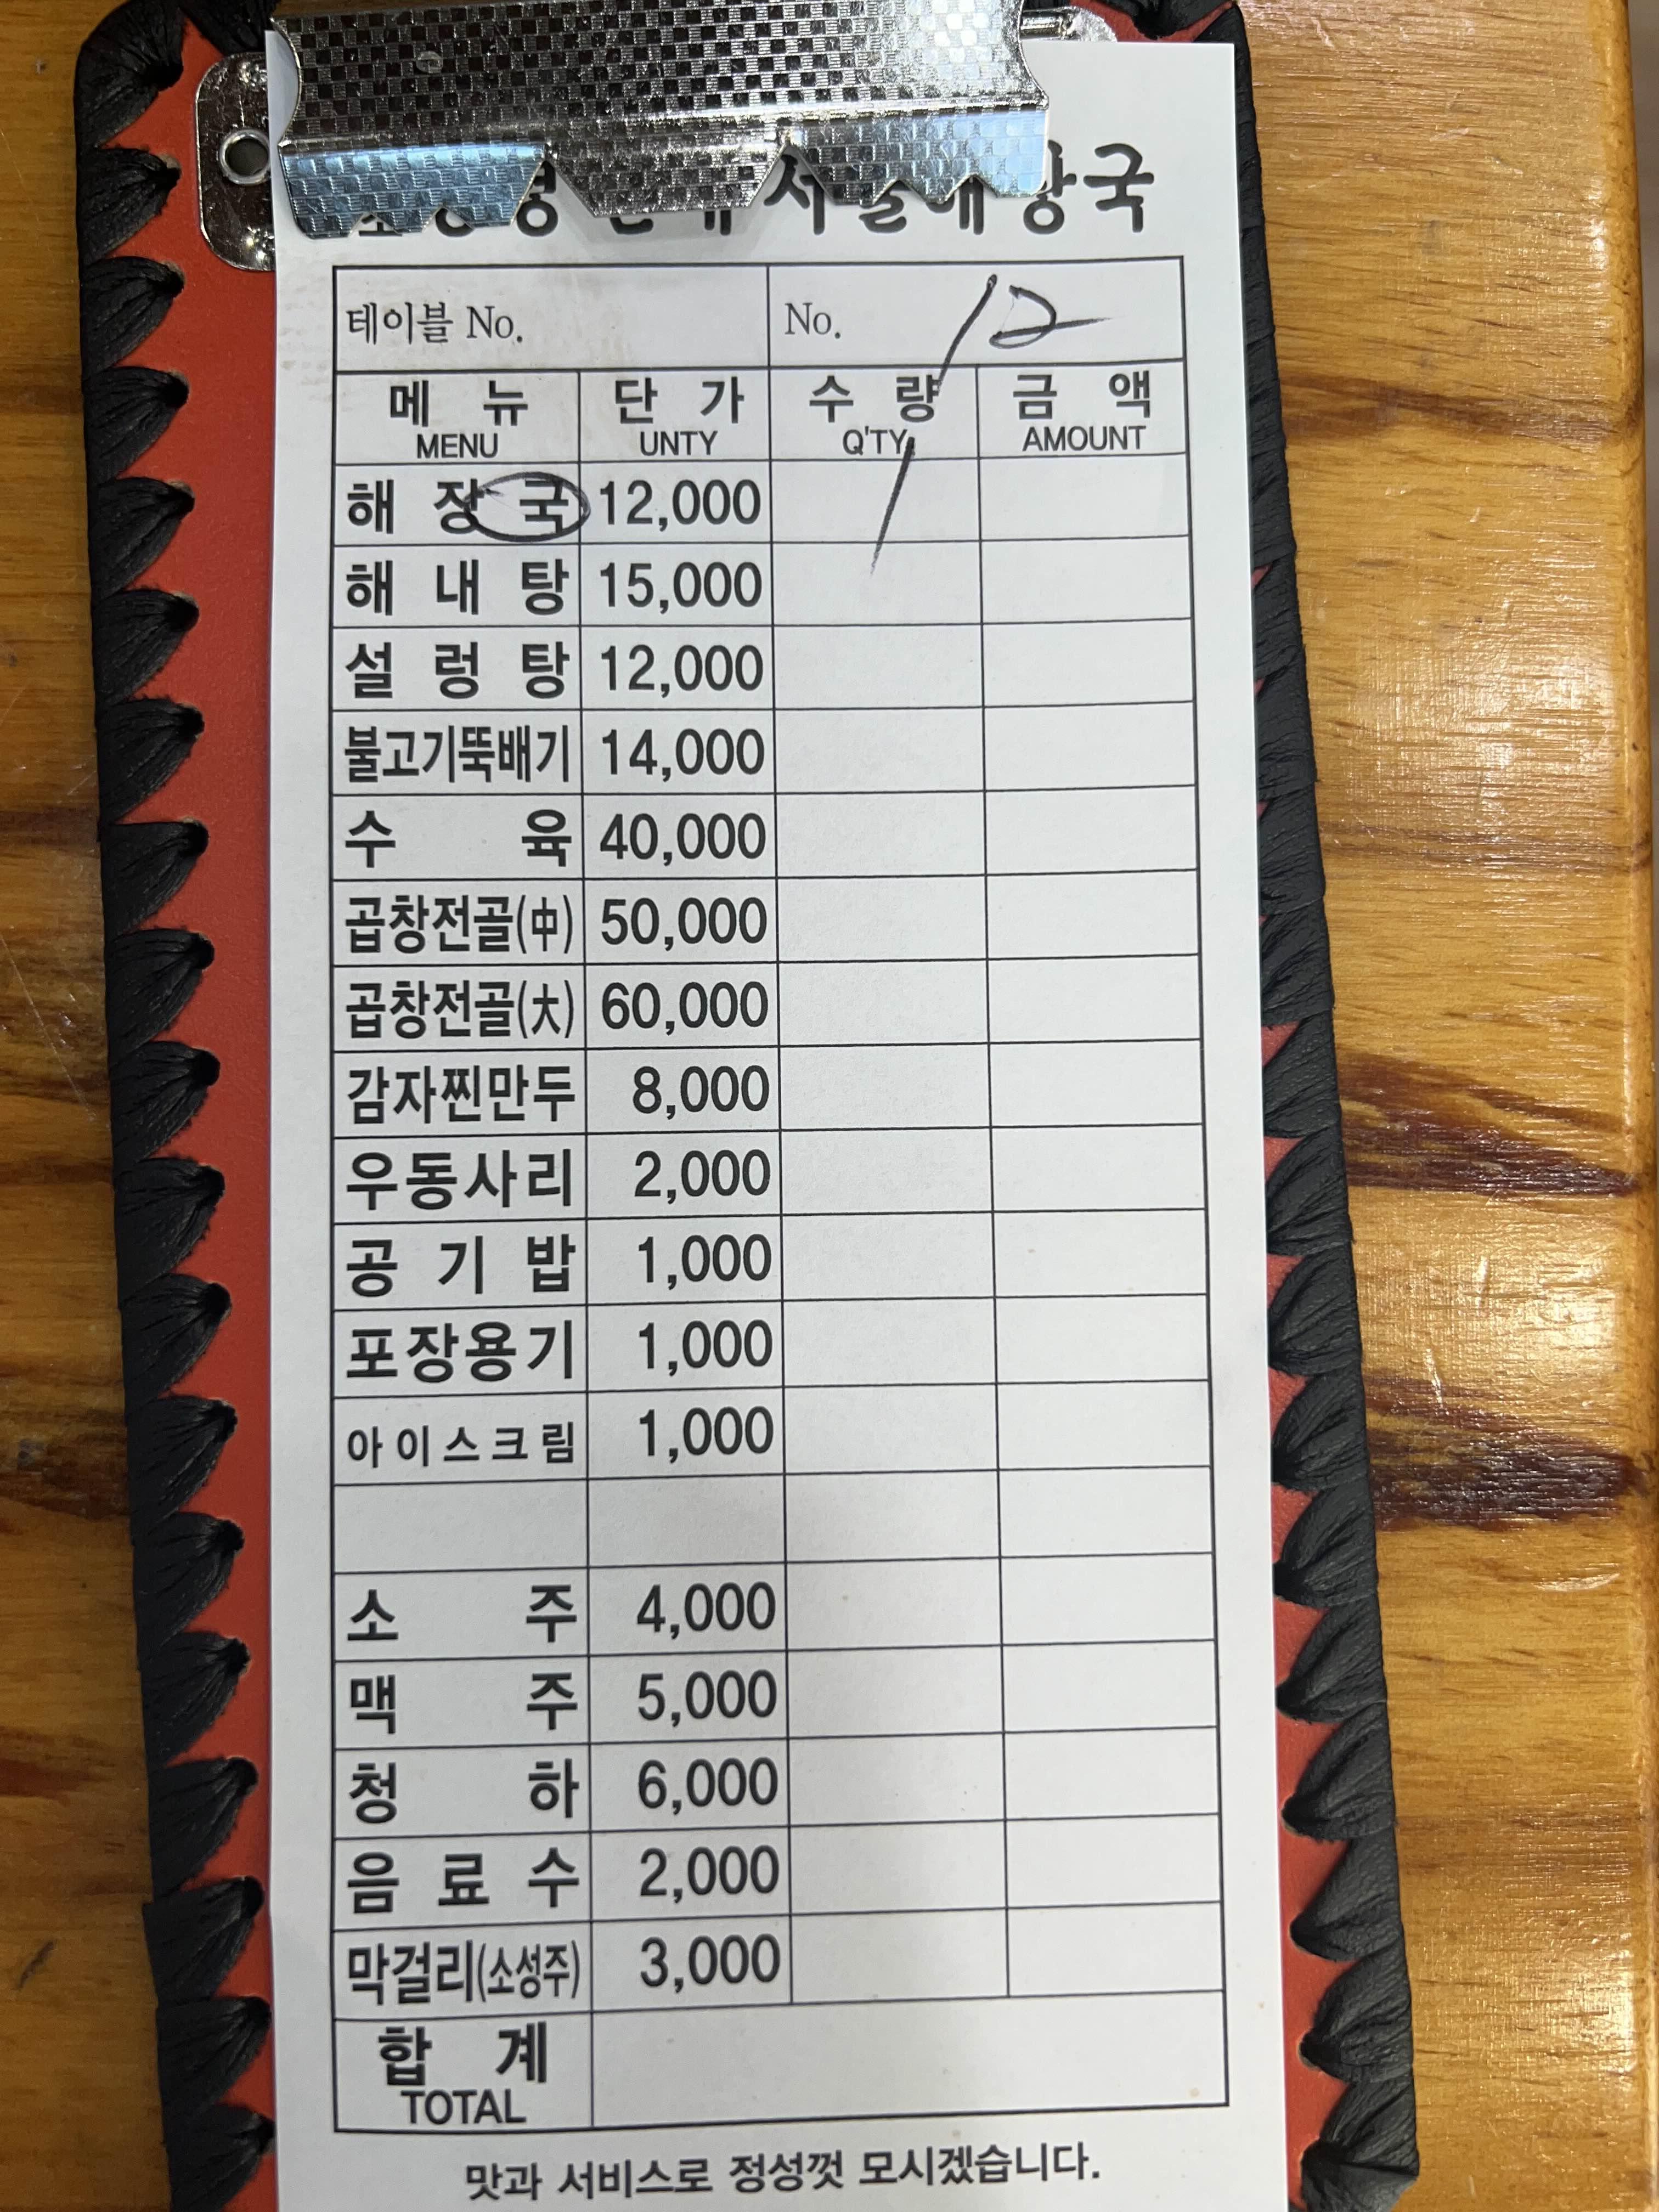 해장국
테이블 No. No. 12
메뉴 단가 수량 금액
MENU UNTY Q'TY AMOUNT
해장국 12,000 1
해내탕 15,000
설렁탕 12,000
불고기뚝배기 14,000
수육 40,000
곱창전골(中) 50,000
곱창전골(大) 60,000
감자찐만두 8,000
우동사리 2,000
공기밥 1,000
포장용기 1,000
아이스크림 1,000
소주 4,000
맥주 5,000
청하 6,000
음료수 2,000
막걸리(소성주) 3,000
합계
TOTAL
맛과 서비스로 정성껏 모시겠습니다.